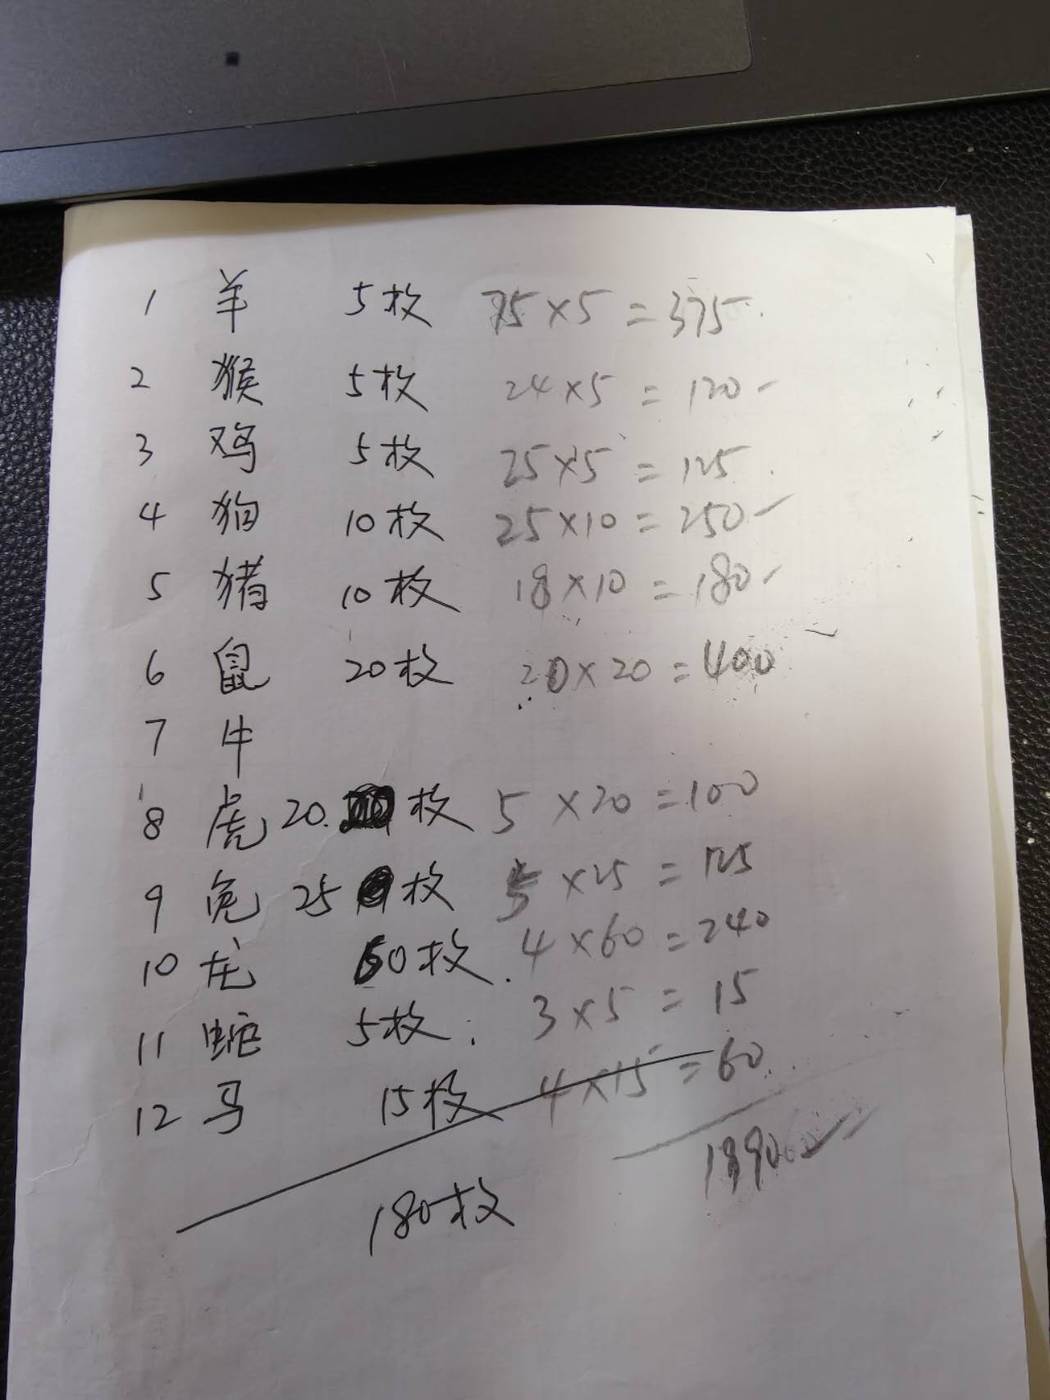 1 羊 5枚 75×5=375
2 猴 5枚 24×5=120
3 鸡 5枚 25×5=125
4 狗 10枚 25×10=250
5 猪 10枚 18×10=180
6 鼠 20枚 20×20=400
7 牛
8 虎 20 枚 5×20=100
9 兔 25 枚 5×25=125
10 龙 60枚 4×60=240
11 蛇 5枚 3×5=15
12 马 15枚 4×15=60
180枚